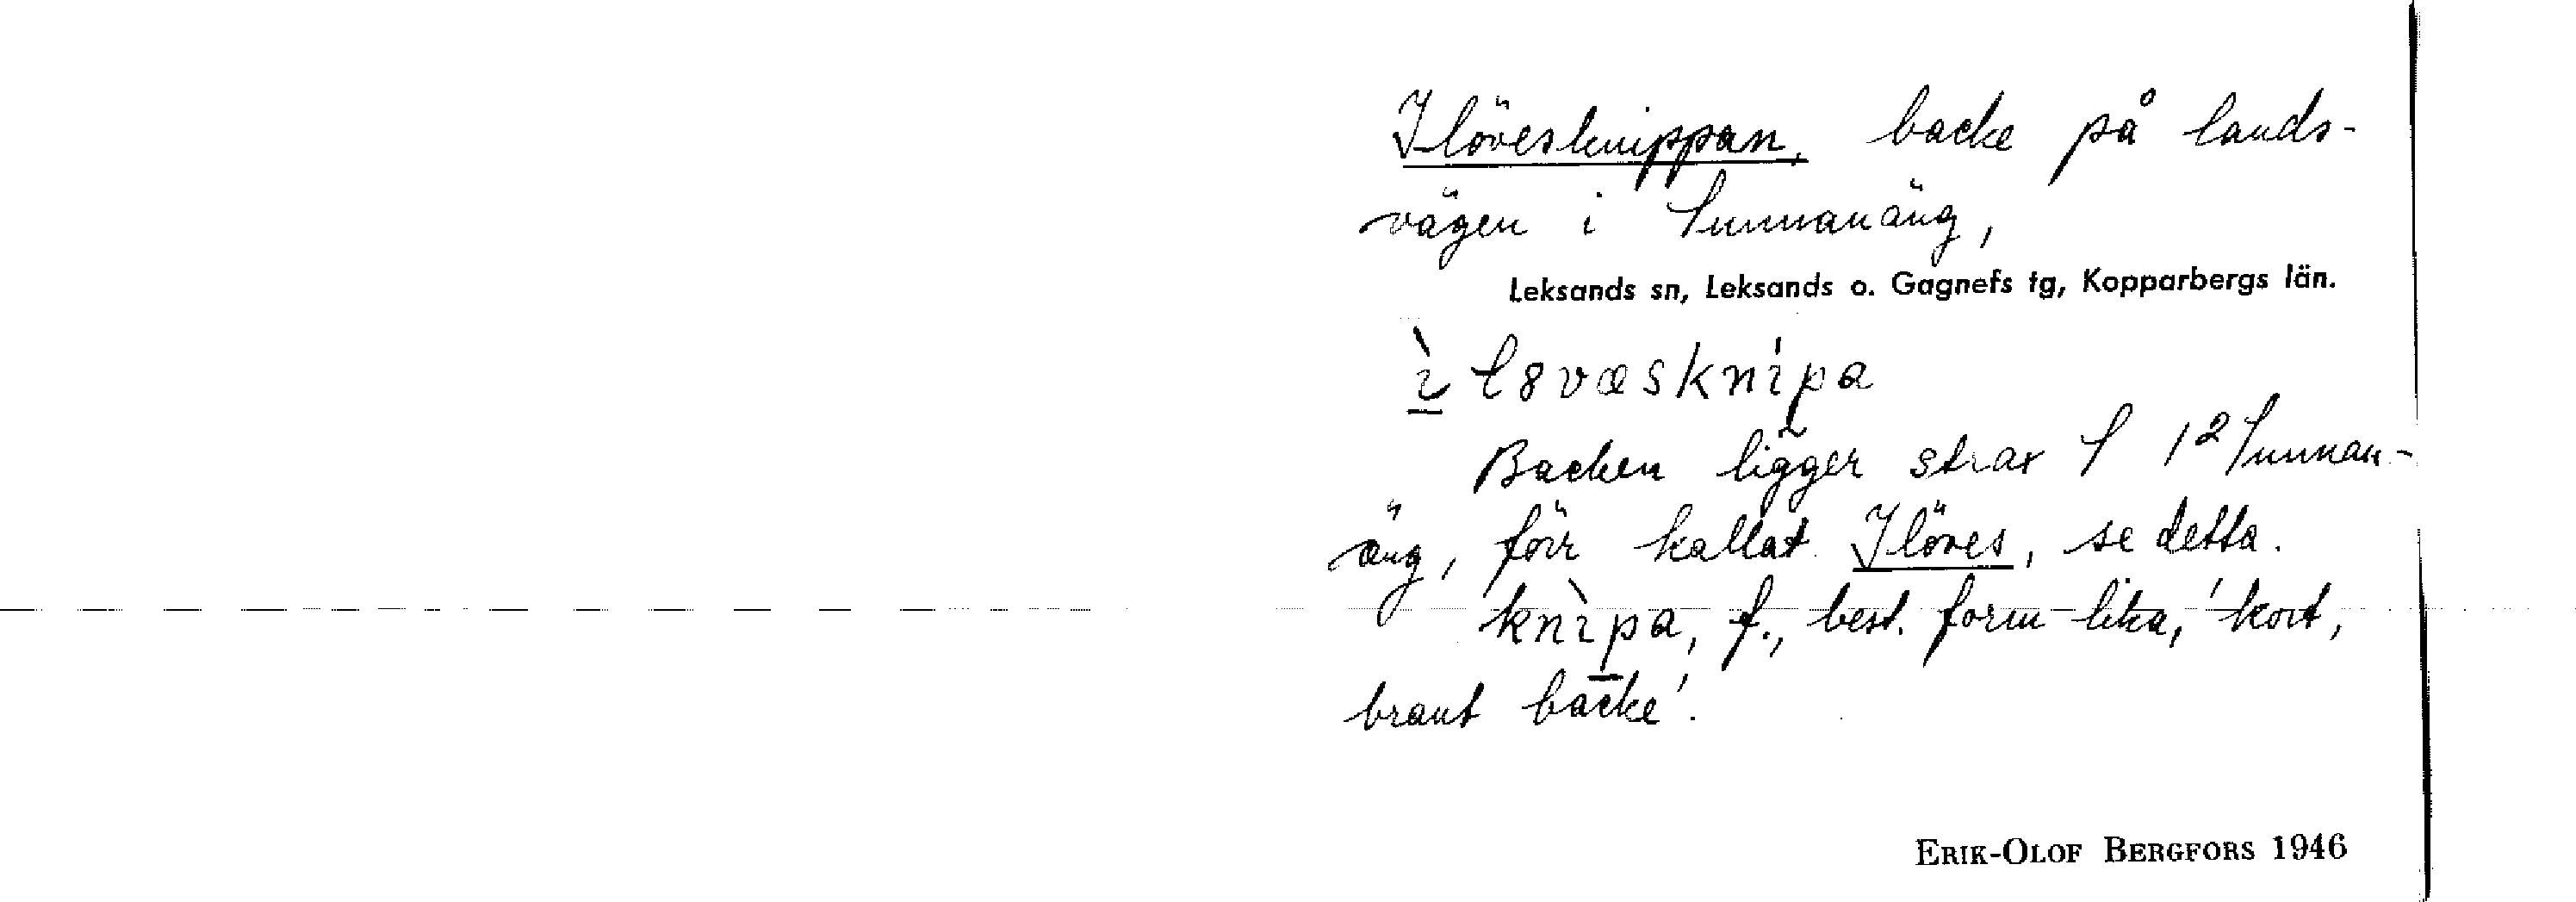 Ilövesknippan, backe på lands-
vägen i Sunnanäng,
Leksands sn, Leksands o. Gagnefs tg, Kopparbergs län.
ì l8væsknìpa
Backen ligger strax S 1² Sunnan-
äng, förr kallat Ilöves, se detta.
knìpa, f., best. form lika, 'kort,
brant backe'.
ERIK-OLOF BERGFORS 1946